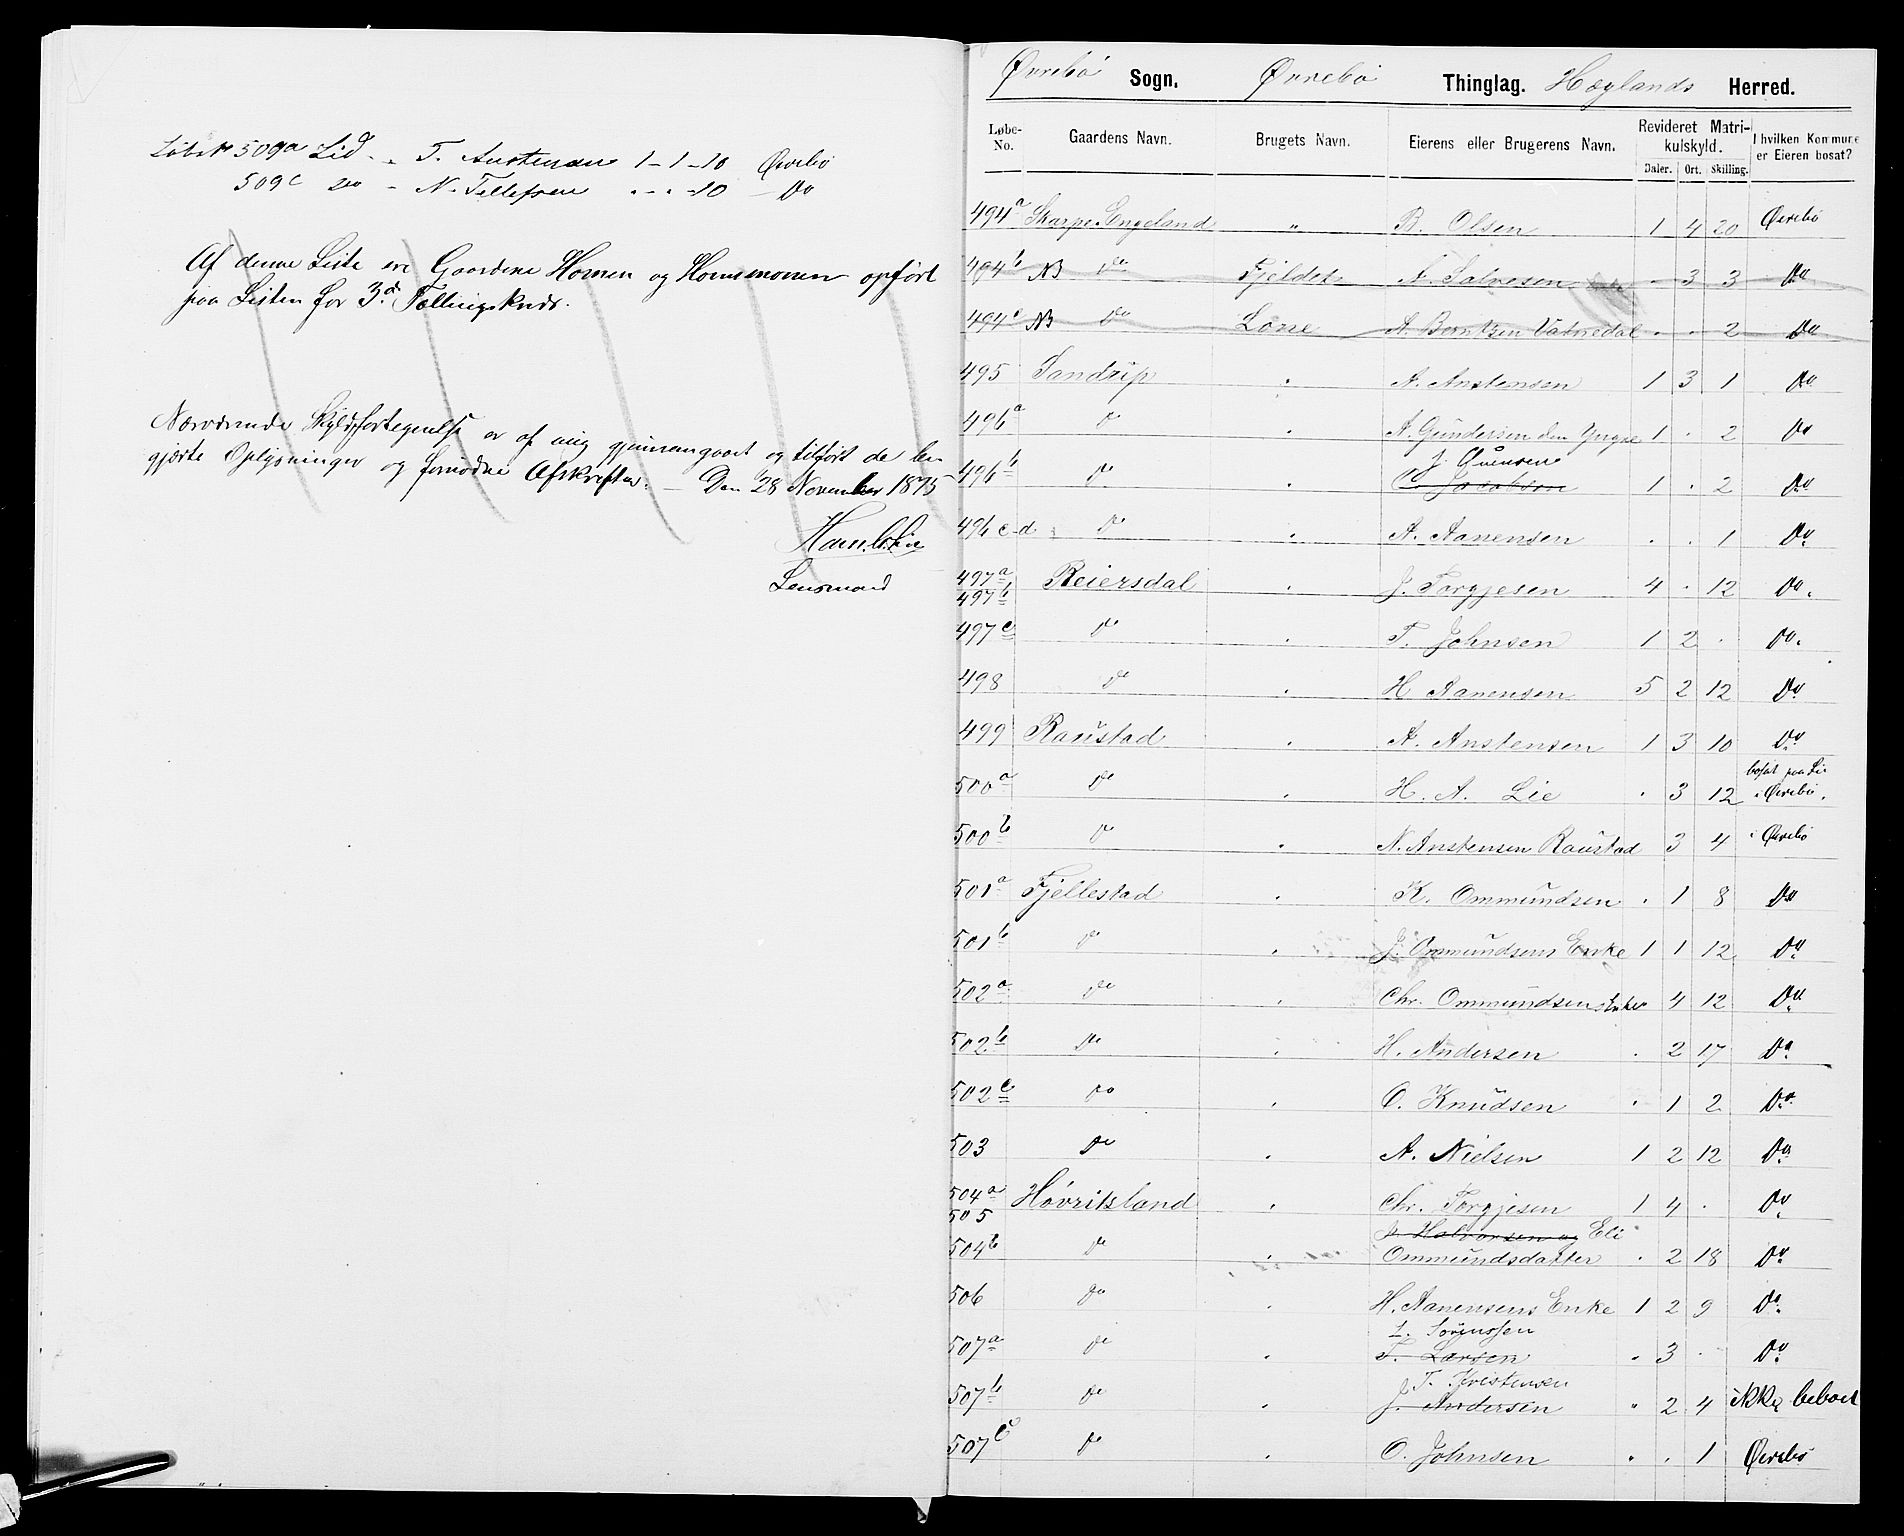 Løbe № 509a Lid - " T. Anstensen 1 - 1 - 10 Øvrebö
509c do - N. Tellefsen " - " - 10 - Do
Af denne Liste ere Gaardene Homen og Homsmonen opført
paa Listen for 3die Tællingskreds.
Nærværende Skyldfortegnelse er af mig gjennemgaaet og tilført de be-
gjærte Oplysninger og fornødne Afskrifter. - Den 28 November 1875
Lensmand
Øvrebö Sogn. Øvrebö Thinglag. Hæglands Herred.
Løbe-No. Gaardens Navn. Brugets Navn. Eierens eller Brugerens Navn. Revideret Matrikulskyld. Daler. Ort. Skilling. I hvilken Kommune er Eieren bosat?
494a Skarpe Engeland " B. Olsen 1 4 20 Øvrebö
494b NB do Fjeldet A. Salvesen . 3 3 Do
494c NB do Lone A. Berntsen Vatnedal . . 2 Do
495 Sandrip . A. Anstensen 1 3 1 Do
496a do . A. Gundersen den Yngre 1 . 2 Do
496b do . C. Jacobsen 1 . 2 Do
496 c-d. do . A. Aanensen . . 1 Do
497a 497b Reiersdal . J. Torgjesen 4 . 12 Do.
497c do . T. Johnsen 1 2 . Do.
498 do . H Aanensen 5 2 12 Do
499 Raustad . A. Anstensen 1 3 10 Do
500a do . H. A. Lie . 3 12 bosat paa Lie i Øvrebö.
500b do . N. Anstensen Raustad 3 4 i Øvrebö
501a Fjellestad . K. Ommundsen . 1 8 Do
501b do . J. Ommundsens Enke 1 1 12 Do
502a do . Chr. Ommundsens Enke 4 12 Do
502b do . H. Andersen . 2 17 Do
502c do . O. Knudsen . 1 2 Do
503 do . A. Nielsen 1 2 12 Do
504a 505 Hövritsland . Chr. Torgjesen 1 4 . Do
J. Halvorsen og Eli
504b do . Ommundsdatter . 2 18 Do
506 do . H. Aanensens Enke 1 2 9 Do
L. Sörenssen
507a do . T. Larsen " 3 . Do
J. T. Kristensen
507b do . J. Andersen " 2 4 ikke beboet
507c do . O. Johnsen " . 1 Øvrebö